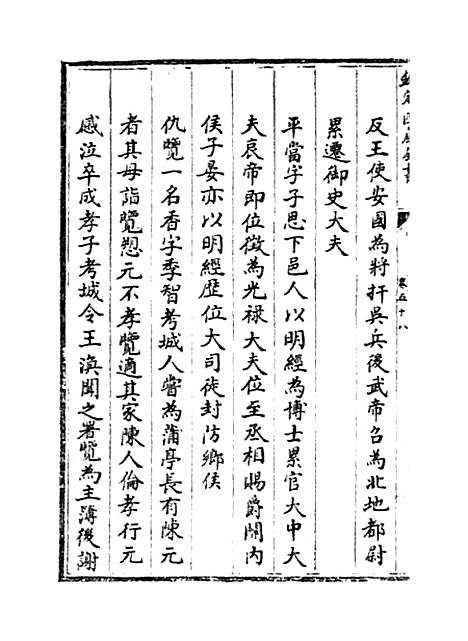 反王使安國為將扞吳兵後武帝召為北地都尉
累遷御史大夫
平當字子思下邑人以明經為博士累官大中大
夫哀帝即位徵為光禄大夫位至丞相賜爵關内
侯子晏亦以明經歴位大司徒封防鄉侯
仇覽一名香字季智考城人嘗為蒲亭長有陳元
者其母詣覽愬元不孝覽適其家陳人倫孝行元
感泣卒成孝子考城令王渙聞之署覽為主簿後謝
卷五十八